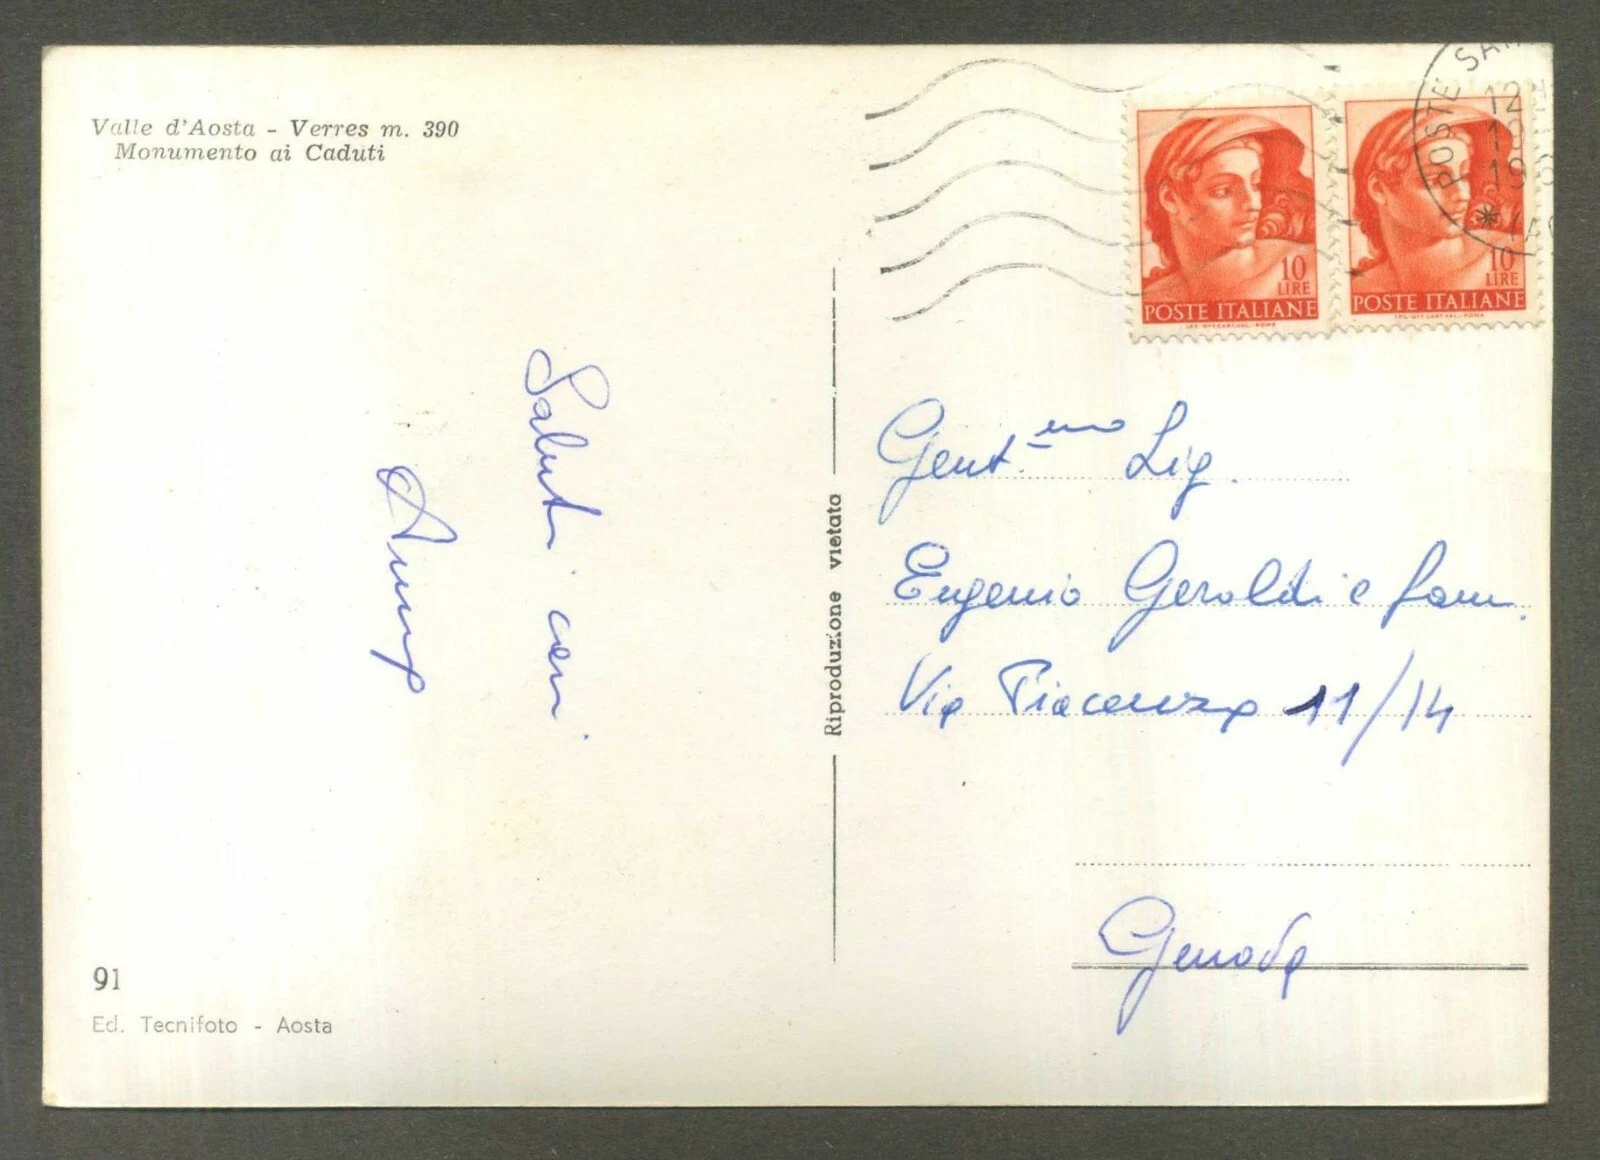 Valle d'Aosta - Verres m. 390
Monumento ai Caduti
Saluti cari
Anna
91
Ed. Tecnifoto - Aosta
Riproduzione vietata
POSTE
12
10 LIRE
POSTE ITALIANE
10 LIRE
POSTE ITALIANE
Gent.mo Sig.
Eugenio Geroldi e fam.
Via Piacenza 11/14
Genova